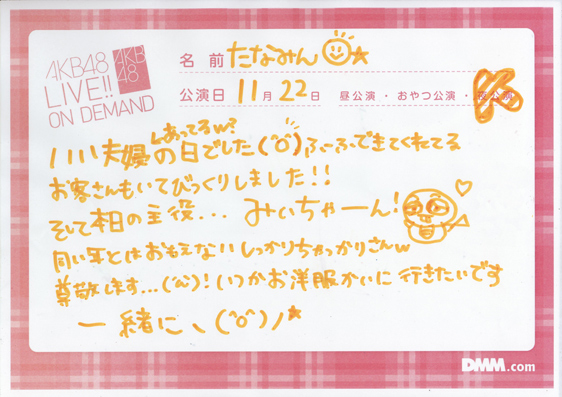 AKB48
LIVE!!
ON DEMAND
AKB
48
名前 たなみん
公演日 11月22日 昼公演・おやつ公演・夜公演
いい夫婦の日でした(^o^)ふーふできてくれてる
あってるw?
お客さんもいてびっくりしました!!
そして本日の主役...みぃちゃーん!
同い年とはおもえないしっかりちゃっかりさんw
尊敬します...(^ω^)!いつかお洋服かいに行きたいです
一緒に、(^o^)ノ
DMM.com